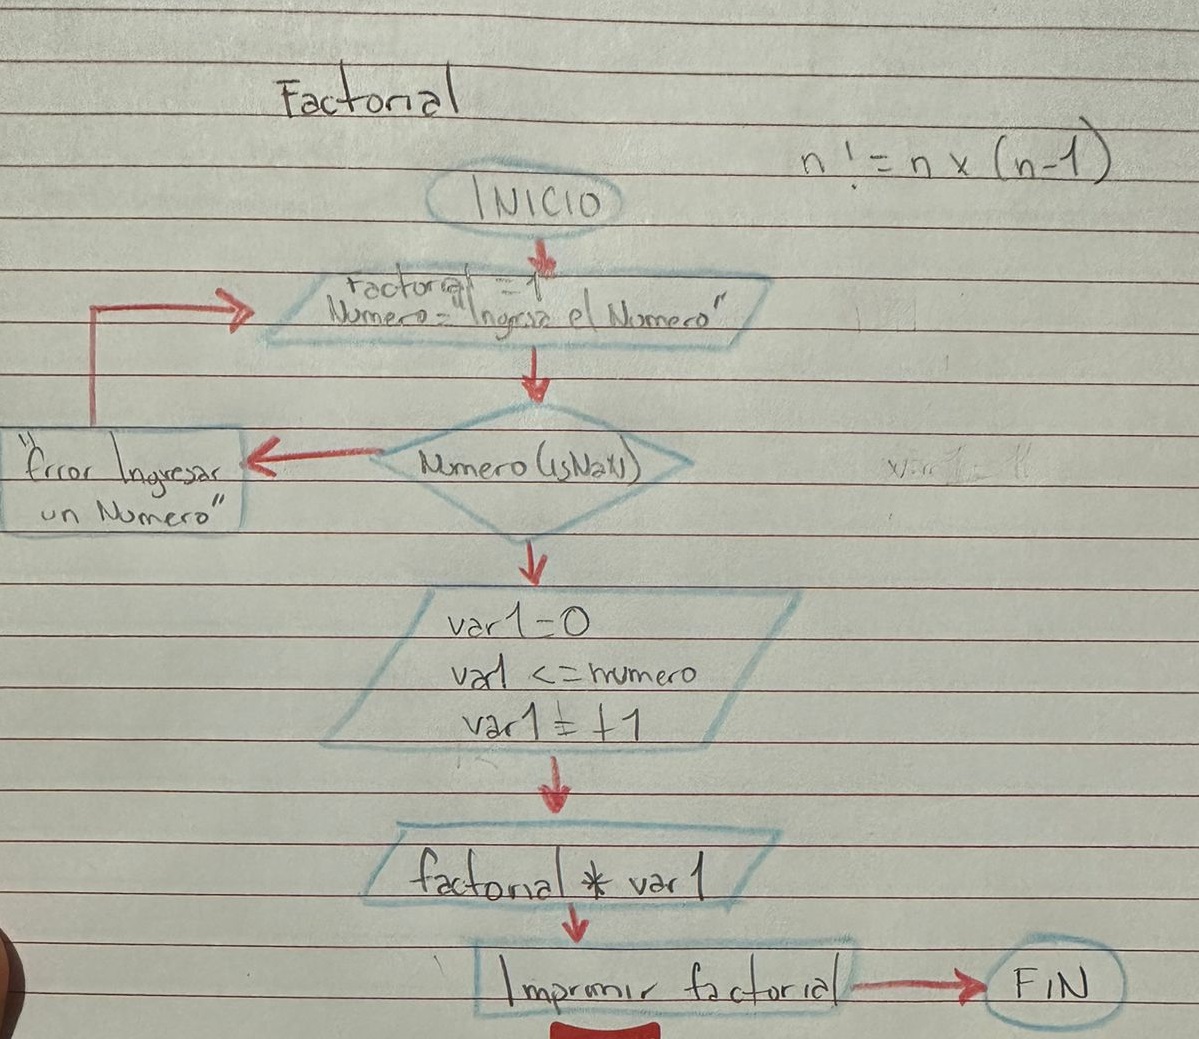 Factorial
n! = n x (n-1)
INICIO
Factorial = 1
Numero = "Ingresa el Numero"
Numero (isNaN)
"Error Ingresar
un Numero"
var1 = 0
var1 <= numero
var1 = +1
factorial * var1
Imprimir factorial
FIN